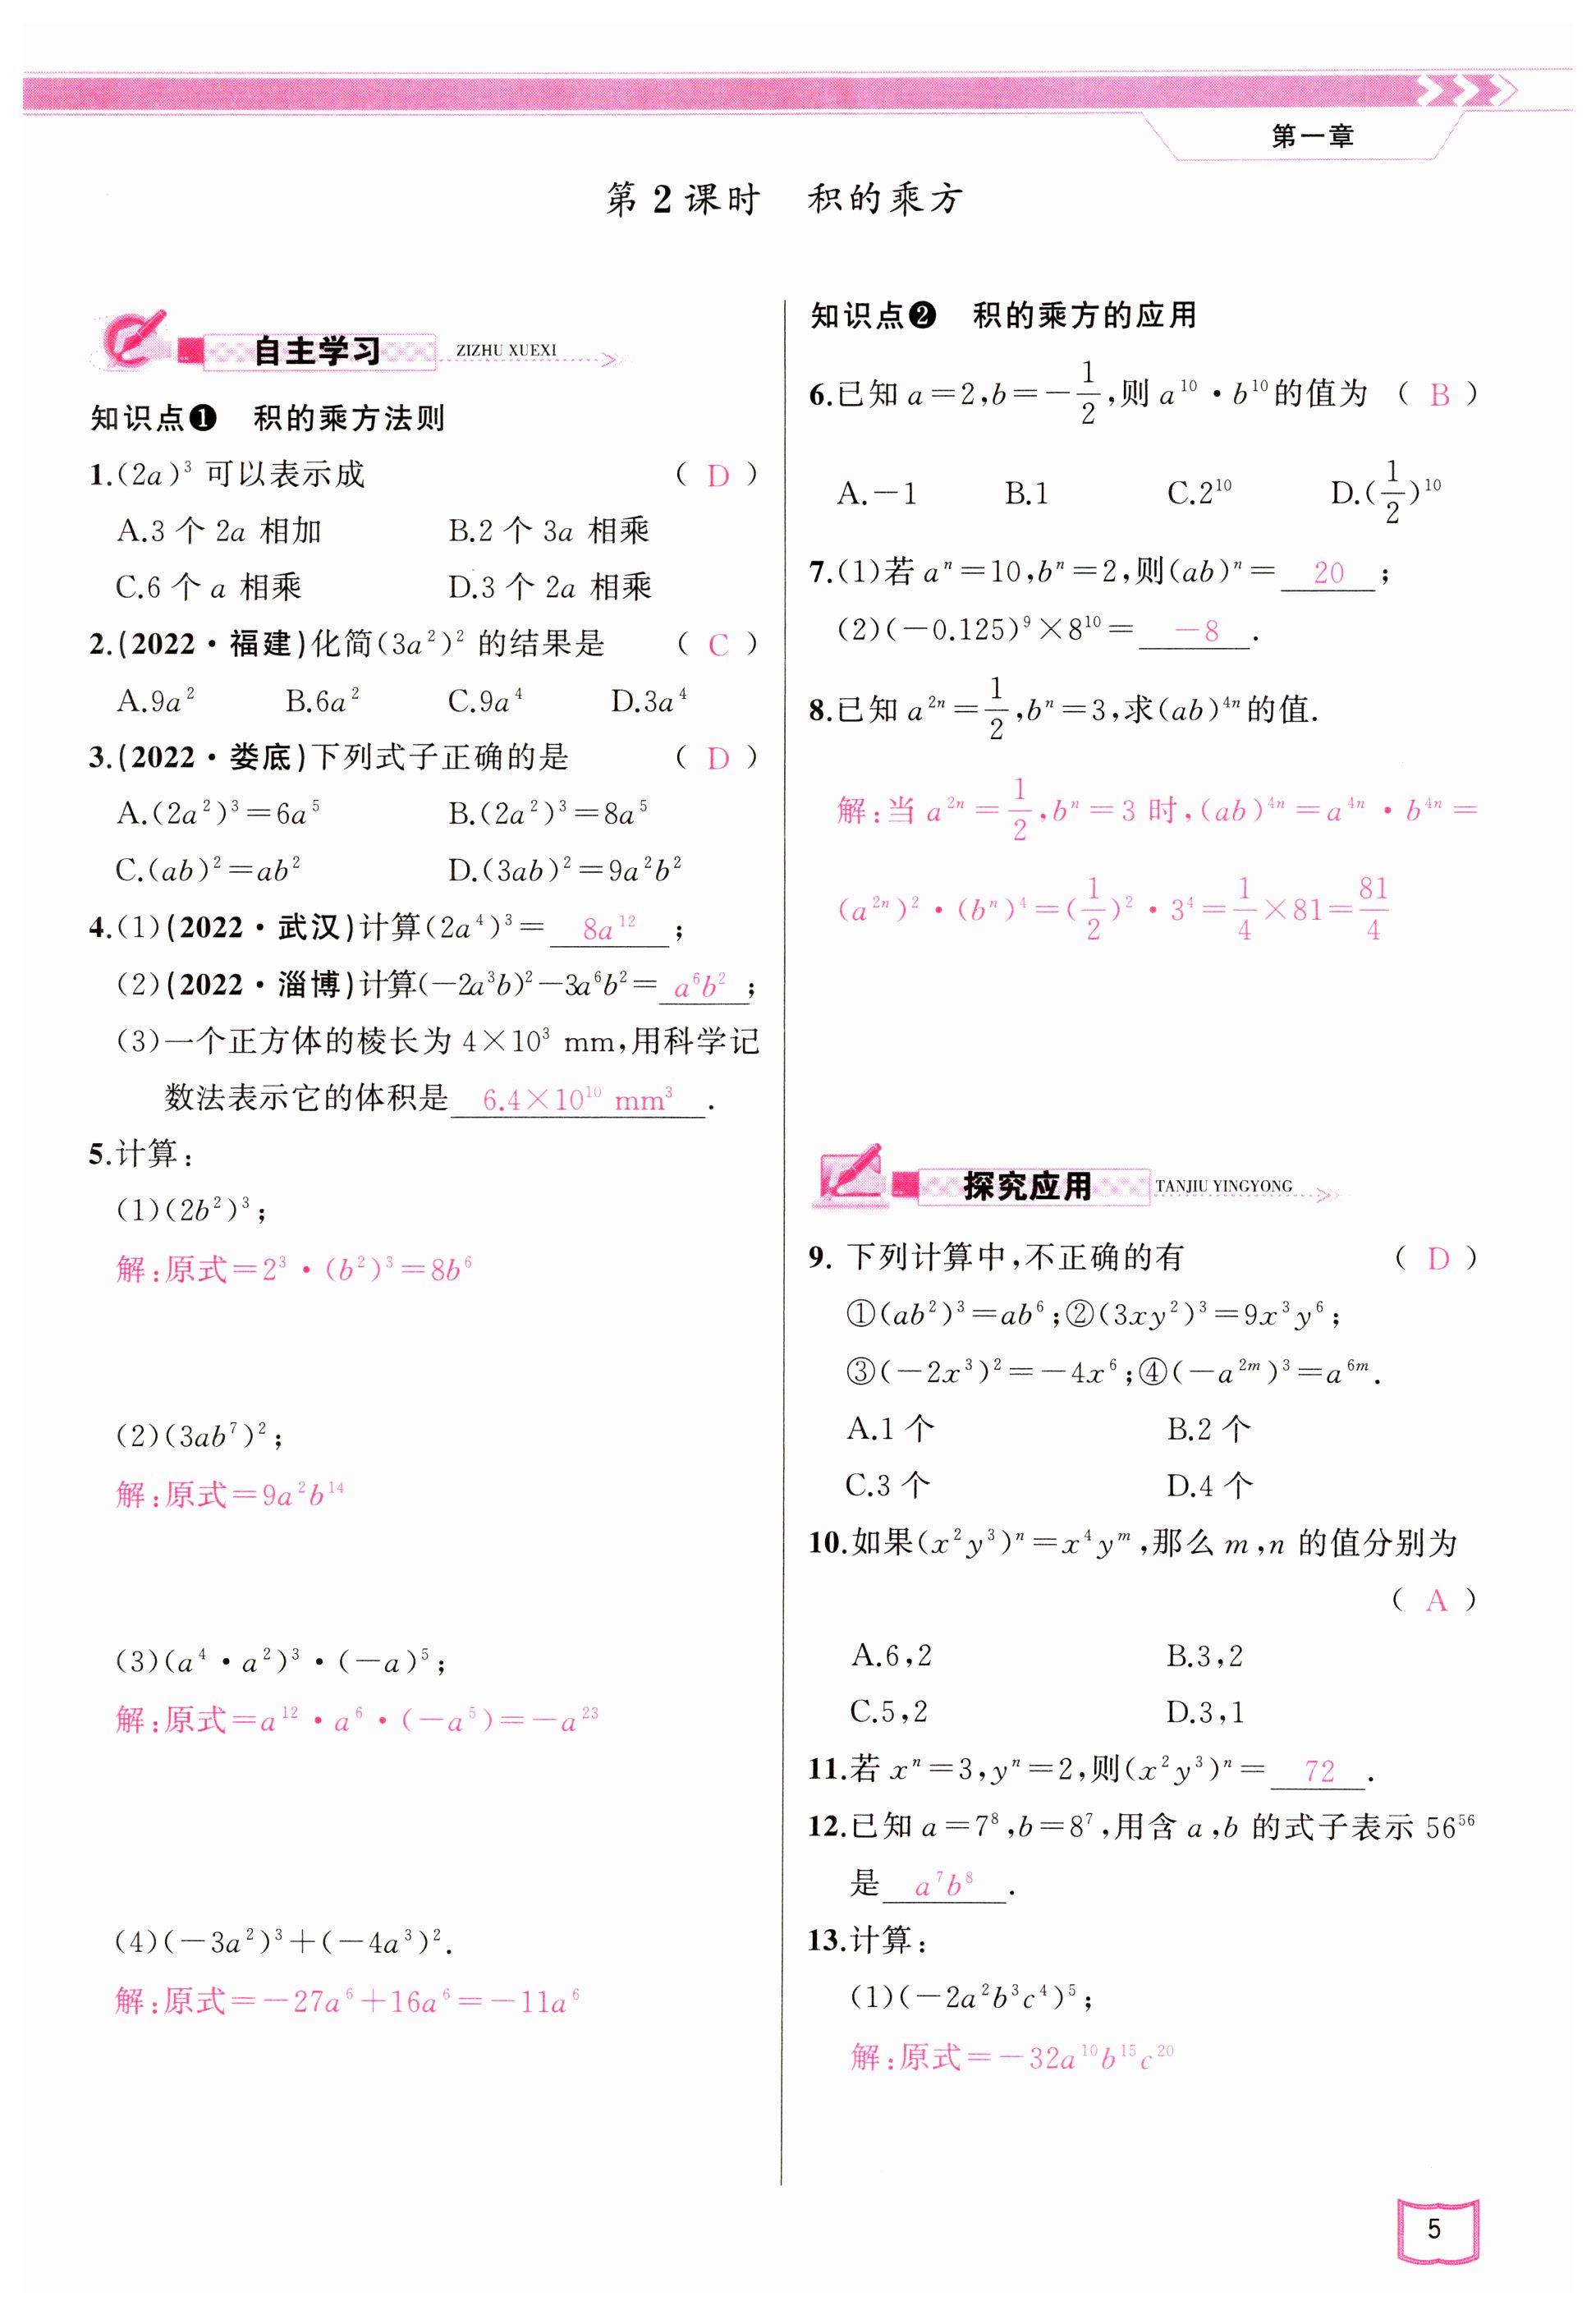 第一章
第2课时 积的乘方
自主学习 ZIZHU XUEXI
知识点❶ 积的乘方法则
1.(2a)³ 可以表示成 ( D )
A.3 个 2a 相加 B.2 个 3a 相乘
C.6 个 a 相乘 D.3 个 2a 相乘
2.(2022·福建)化简(3a²)² 的结果是 ( C )
A.9a² B.6a² C.9a⁴ D.3a⁴
3.(2022·娄底)下列式子正确的是 ( D )
A.(2a²)³=6a⁵ B.(2a²)³=8a⁵
C.(ab)²=ab² D.(3ab)²=9a²b²
4.(1)(2022·武汉)计算(2a⁴)³= 8a¹² ;
(2)(2022·淄博)计算(-2a³b)²-3a⁶b²= a⁶b² ;
(3)一个正方体的棱长为 4×10³ mm,用科学记
数法表示它的体积是 6.4×10¹⁰ mm³ .
5.计算:
(1)(2b²)³;
解:原式=2³·(b²)³=8b⁶
(2)(3ab⁷)²;
解:原式=9a²b¹⁴
(3)(a⁴·a²)³·(-a)⁵;
解:原式=a¹²·a⁶·(-a⁵)=-a²³
(4)(-3a²)³+(-4a³)².
解:原式=-27a⁶+16a⁶=-11a⁶
知识点❷ 积的乘方的应用
6.已知 a=2,b=-1/2,则 a¹⁰·b¹⁰的值为 ( B )
A.-1 B.1 C.2¹⁰ D.(1/2)¹⁰
7.(1)若 aⁿ=10,bⁿ=2,则(ab)ⁿ= 20 ;
(2)(-0.125)⁹×8¹⁰= -8 .
8.已知 a²ⁿ=1/2,bⁿ=3,求(ab)⁴ⁿ的值.
解:当 a²ⁿ=1/2,bⁿ=3 时,(ab)⁴ⁿ=a⁴ⁿ·b⁴ⁿ=
(a²ⁿ)²·(bⁿ)⁴=(1/2)²·3⁴=1/4×81=81/4
探究应用 TANJIU YINGYONG
9. 下列计算中,不正确的有 ( D )
①(ab²)³=ab⁶;②(3xy²)³=9x³y⁶;
③(-2x³)²=-4x⁶;④(-a²ᵐ)³=a⁶ᵐ.
A.1 个 B.2 个
C.3 个 D.4 个
10.如果(x²y³)ⁿ=x⁴yᵐ,那么 m,n 的值分别为
( A )
A.6,2 B.3,2
C.5,2 D.3,1
11.若 xⁿ=3,yⁿ=2,则(x²y³)ⁿ= 72 .
12.已知 a=7⁸,b=8⁷,用含 a,b 的式子表示 56⁵⁶
是 a⁷b⁸ .
13.计算:
(1)(-2a²b³c⁴)⁵;
解:原式=-32a¹⁰b¹⁵c²⁰
5